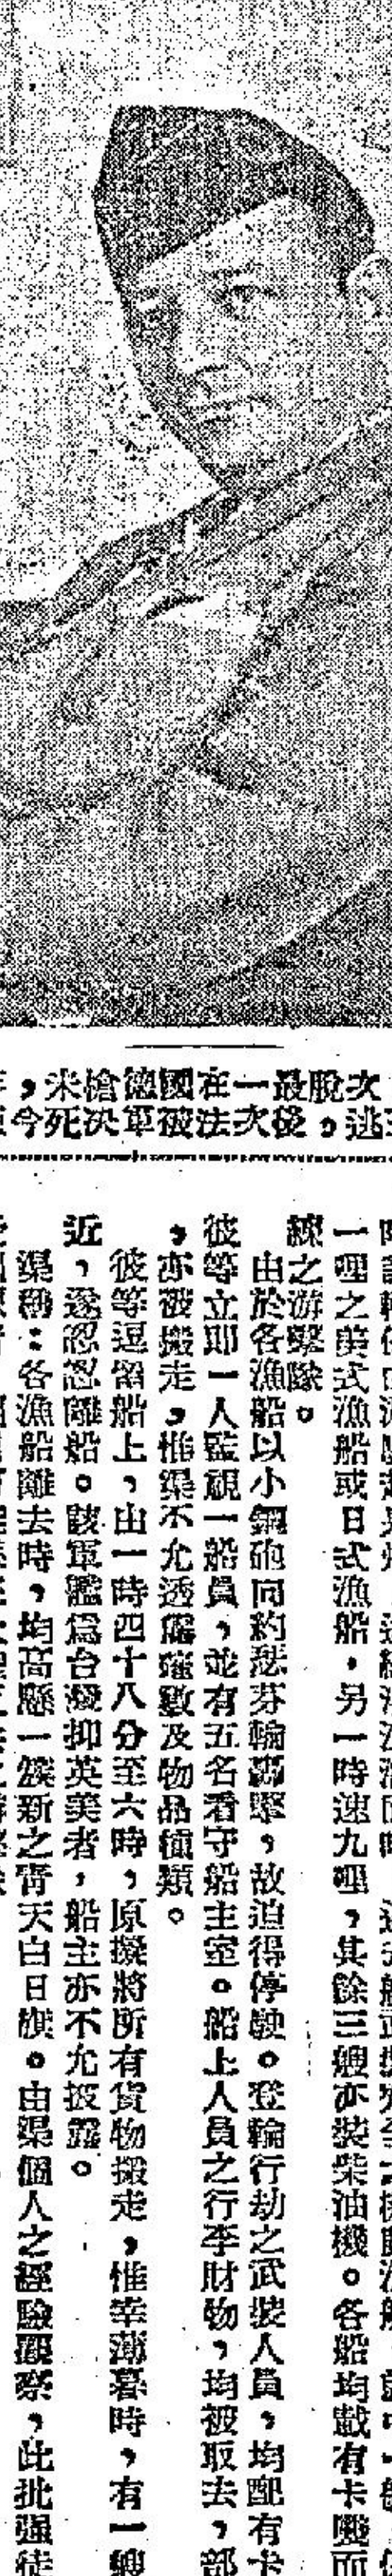 次逃
脫。
最後
一次
在法
國被
德軍
槍決
未死
,今
一哩之美式漁船或日式漁船,另一時速九哩,其餘三艘亦裝柴油機。各船均載有卡
練之游擊隊。
由於各漁船以小鋼砲向約瑟芬輪轟擊,故迫得停駛。登輪行劫之武裝人員,均配有卡
彼等立即一人監視一船員,並有五名看守船主室。船上人員之行李財物,均被取去,部
,亦被搬走,惟渠不允透露確數及物品種類。
彼等逗留船上,由一時四十八分至六時,原擬將所有貨物搬走,惟幸薄暮時,有一艘
近,遂怱怱離船。該軍艦爲台灣抑英美者,船主亦不允披露。
渠稱:各漁船離去時,均高懸一簇新之靑天白日旗。由渠個人之經驗觀察,此批强徒